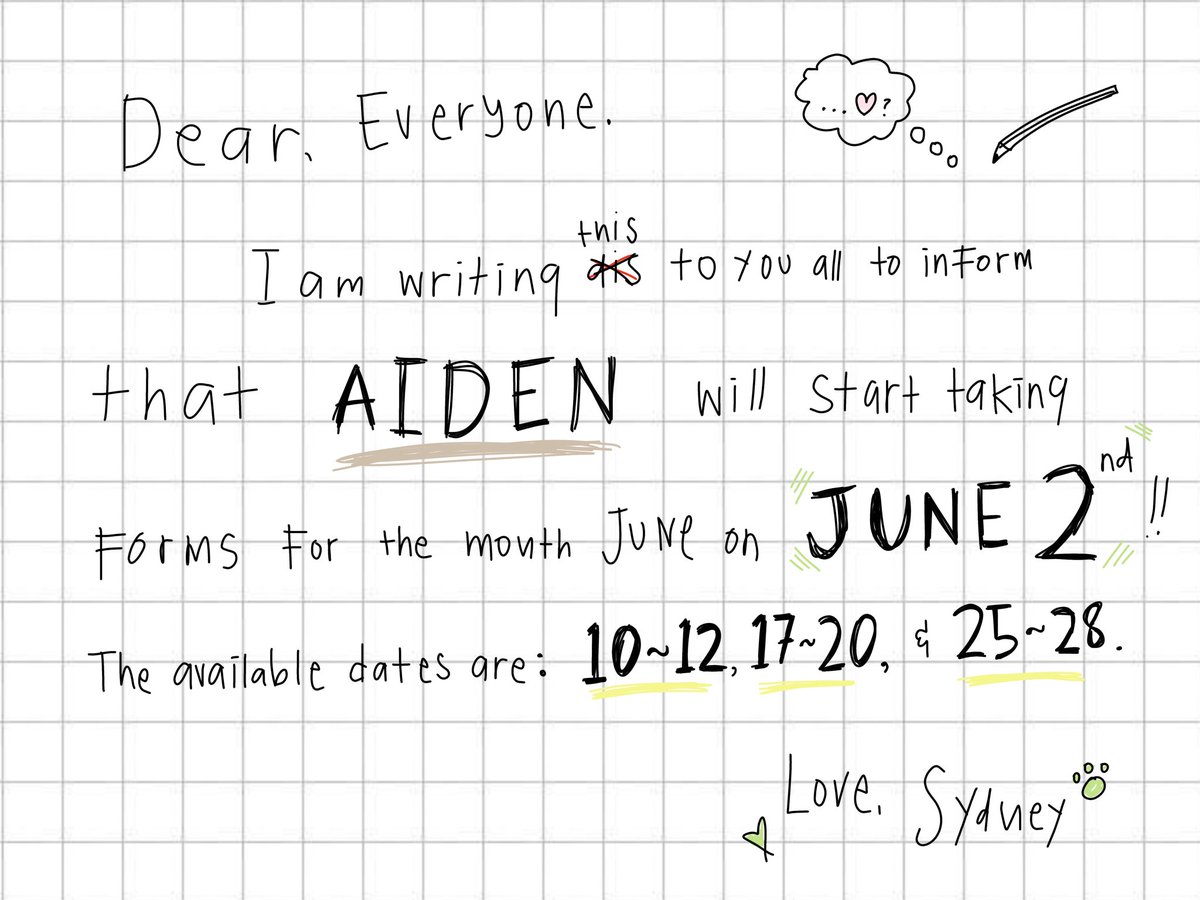 ... ♡?
Dear, Everyone.
this
I am writing dis to you all to inform
that AIDEN will start taking
forms for the mouth JUNE on JUNE 2nd !!
The available dates are: 10~12, 17~20, & 25~28.
Love, Sydney